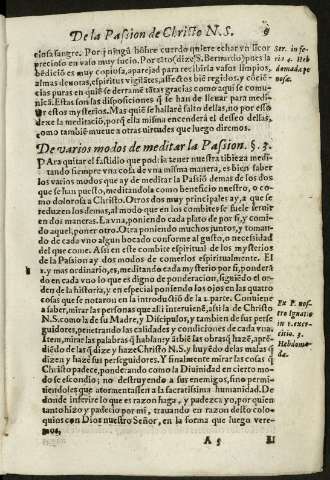 De la Passion de Christo N.S. 9
ciosa sangre. Porq̃ ningũ hõbre cuerdo quiere echar vn licor
precioso en vaso muy suzio. Por tãto (dize S. Bernardo) pues la
bẽdiciõ es muy copiosa, aparejad para recibirla vasos limpios,
almas deuotas, espiritus vigilãtes, affectos biẽ regidos, y cõciẽ
cias puras en quiẽ se derrame tãtas gracias como aqui se comu-
nicã. Estas son las disposiciones q̃ se han de lleuar para medi-
tar estos mysterios. Mas quiẽ se hallarẽ falto dellas, no por esso
dexe la meditaciõ, porq̃ ella misma encenderá el desseo dellas,
como tambiẽ mueue a otras virtudes que luego diremos.
Ser. in fe-
ria 4. Heb
domadæ pę
nosæ.
De varios modos de meditar la Passion. §. 3.
Para quitar el fastidio que podria tener nuestra tibieza medi-
tando siempre vna cosa de vna misma manera, es bien saber
los varios modos que ay de meditar la Passiõ demas de los dos
que se han puesto, meditandola como beneficio nuestro, o co-
mo dolorosa a Christo. Otros dos muy principales ay, a que se
reduzen los demas, al modo que en los combites se suele seruir
en dos maneras. La vna, poniendo cada plato de por si, y comiẽ
do aquel, poner otro. Otra poniendo muchos juntos, y toman-
do de cada vno algun bocado conforme al gusto, o necessidad
del que come. Assi en este combite espiritual de los mysterios
de la Passion ay dos modos de comerlos espiritualmente. El
1. y mas ordinario, es, meditando cada mysterio por si, ponderã
do en cada vno lo que es digno de ponderacion, siguiẽdo el or-
den de la historia, y en especial poniendo los ojos en las quatro
cosas que se notaron en la introductiõ de la 2. parte. Conuiene
a saber, mirar las personas que alli interuiniẽ, assi la de Christo
N.S. como la de su Madre, y Discipulos, y tambien de sus perse
guidores, penetrando las calidades y condiciones de cada vna.
Item, mirar las palabras q̃ hablan, y ãtibiẽ las obras q̃ hazẽ, aprẽ-
diẽdo de las q̃ dize y haze Christo N.S. y huyẽdo de las malas q̃
dizen y haze sus perseguidores. Y finalmente mirar las cosas q̃
Christo padece, ponderando como la Diuinidad en cierto mo-
do se escondio; no destruyendo a sus enemigos, sino permi-
tiendoles que atormentassen a la sacratissima humanidad. De
donde inferire lo que es razon haga, y padezca yo, por quien
tanto hizo y padecio por mi, trauando en razon desto colo-
quios con Dios nuestro Señor, en la forma que luego vere-
mos.
Ex P. nos-
tro Ignatio
in 1. exer-
citio. 3.
Hebdoma-
dæ.
A 5 El